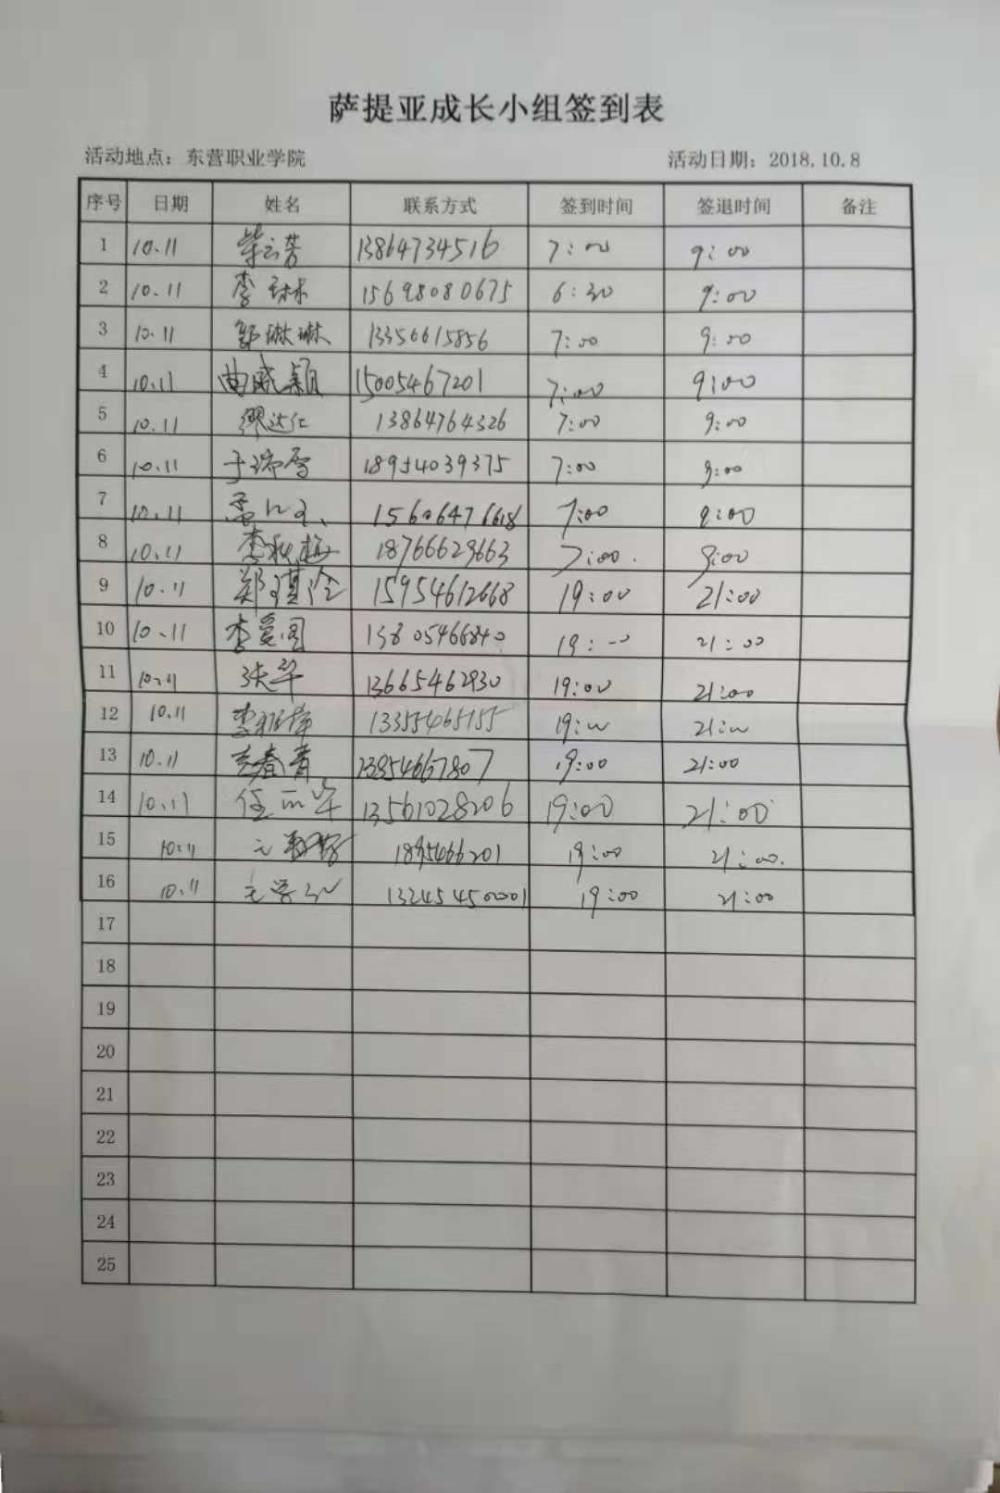 萨提亚成长小组签到表
活动地点：东营职业学院 活动日期：2018.10.8
序号 日期 姓名 联系方式 签到时间 签退时间 备注
1 10.11 柴云芳 13864734516 7:00 9:00
2 10.11 李琳 15698080675 6:30 9:00
3 10.11 郭琳琳 13356615856 7:00 9:00
4 10.11 曲威颖 15005467201 7:00 9:00
5 10.11 缪达仁 13864764326 7:00 9:00
6 10.11 于瑞雪 18954039375 7:00 9:00
7 10.11 15606476618 7:00 9:00
8 10.11 李秋梅 18766629663 7:00. 9:00
9 10.11 郑琪玲 15954612668 19:00 21:00
10 10.11 李爱国 13805466840 19:00 21:00
11 10.11 张华 13665462930 19:00 21:00
12 10.11 13355465155 19:00 21:00
13 10.11 19:00 21:00
14 10.11 任丽华 13561028206 19:00 21:00
15 10.11 19:00 21:00.
16 10.11 19:00 21:00
17
18
19
20
21
22
23
24
25